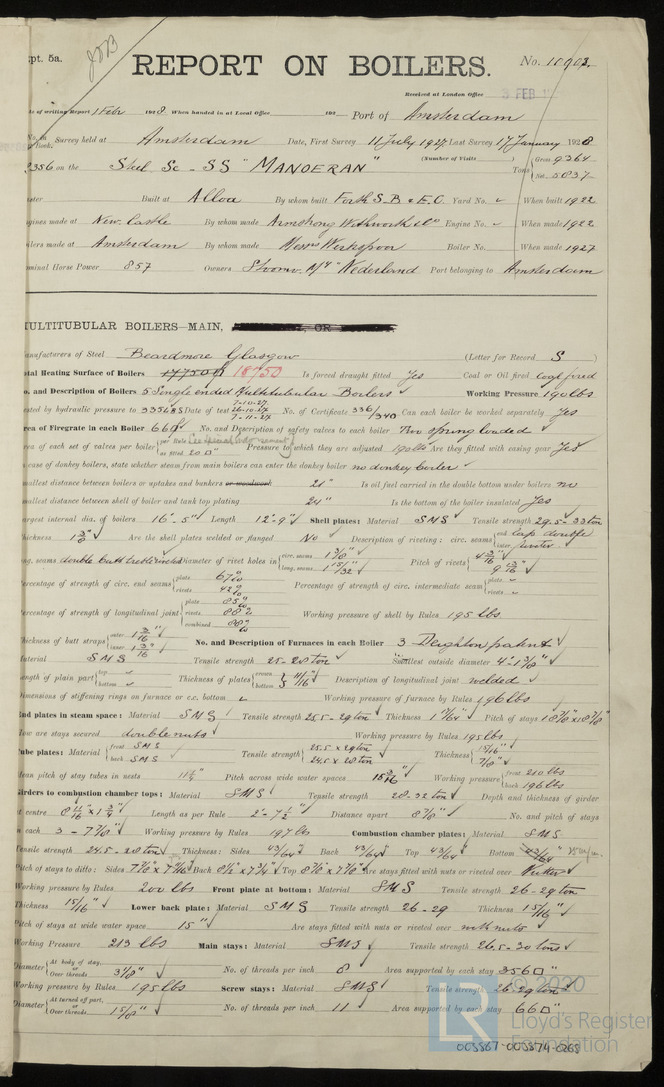 pt. 5a.
REPORT ON BOILERS.
No. 10903.
Received at London Office 3 FEB
te of writing Report 1 Febr 1928 When handed in at Local Office 192 Port of Amsterdam
No. in Book. Survey held at Amsterdam Date, First Survey 11 July 1927 Last Survey 17 January 1928
(Number of Visits )
3356 on the Steel Sc - SS "MANOERAN" Tons Gross 9364 Net 5837
ster Built at Alloa By whom built Forth S.B & E.C. Yard No. When built 1922
gines made at New Castle By whom made Armstrong Withwork & Co Engine No. When made 1922
ilers made at Amsterdam By whom made Messrs Werkspoor Boiler No. When made 1927
minal Horse Power 857 Owners Stoomv. My "Nederland Port belonging to Amsterdam
MULTITUBULAR BOILERS—MAIN,
anufacturers of Steel Beardmore Glasgow (Letter for Record S )
otal Heating Surface of Boilers 18750 Is forced draught fitted Yes Coal or Oil fired coal fired
o. and Description of Boilers 5 Single ended Multitubular Boilers Working Pressure 190 lbs
ested by hydraulic pressure to 335 lbs Date of test 7-10-27 26-10-27 7-11-27 No. of Certificate 336/340 Can each boiler be worked separately Yes
rea of Firegrate in each Boiler 66 No. and Description of safety valves to each boiler Two spring loaded
rea of each set of valves per boiler per Rule as fitted 20 Pressure to which they are adjusted 190 lbs Are they fitted with easing gear Yes
case of donkey boilers, state whether steam from main boilers can enter the donkey boiler no donkey boiler
mallest distance between boilers or uptakes and bunkers or woodwork 21" Is oil fuel carried in the double bottom under boilers no
mallest distance between shell of boiler and tank top plating 24" Is the bottom of the boiler insulated Yes
argest internal dia. of boilers 16'-5" Length 12'-9" Shell plates: Material SMS Tensile strength 29.5-33 ton
hickness 1 3/8" Are the shell plates welded or flanged No Description of riveting: circ. seams end lap double inter
ng. seams double butt treble riveted Diameter of rivet holes in circ. seams 1 3/8" long. seams 1 15/32" Pitch of rivets 4 3/16" 9 13/16"
ercentage of strength of circ. end seams plate 67% rivets 42% Percentage of strength of circ. intermediate seam plate rivets
ercentage of strength of longitudinal joint plate 85% rivets 88% combined 88% Working pressure of shell by Rules 195 lbs
hickness of butt straps outer 1 3/16" inner 1 3/16" No. and Description of Furnaces in each Boiler 3 Deighton patent
aterial SMS Tensile strength 25-28 ton Smallest outside diameter 4'-1 3/8"
ength of plain part top bottom Thickness of plates crown bottom 11/16" Description of longitudinal joint welded
imensions of stiffening rings on furnace or c.c. bottom Working pressure of furnace by Rules 196 lbs
nd plates in steam space: Material SMS Tensile strength 25.5-29 ton Thickness 1 9/64" Pitch of stays 18 7/8" x 18 7/8"
ow are stays secured double nuts Working pressure by Rules 195 lbs
ube plates: Material front SMS back SMS Tensile strength 25.5 x 29 ton 24.5 x 28 ton Thickness 15/16" 7/8"
ean pitch of stay tubes in nests 11 1/4" Pitch across wide water spaces 15 3/16" Working pressure front 210 lbs back 196 lbs
irders to combustion chamber tops: Material SMS Tensile strength 28-32 ton Depth and thickness of girder
t centre 8 11/16" x 1 3/4" Length as per Rule 2'-7 1/2" Distance apart 8 7/8" No. and pitch of stays
n each 3 - 7 7/8" Working pressure by Rules 197 lbs Combustion chamber plates: Material SMS
ensile strength 24.5-28 ton Thickness: Sides 43/64" Back 43/64" Top 43/64" Bottom 43/64"
itch of stays to ditto: Sides 7 7/8" x 7 9/16" Back 8 1/2" x 7 3/4" Top 8 7/8" x 7 7/8" Are stays fitted with nuts or riveted over Nutted
orking pressure by Rules 200 lbs Front plate at bottom: Material SMS Tensile strength 26-29 ton
hickness 15/16" Lower back plate: Material SMS Tensile strength 26-29 Thickness 15/16"
itch of stays at wide water space 15" Are stays fitted with nuts or riveted over with nuts
orking Pressure 213 lbs Main stays: Material SMS Tensile strength 26.5-30 tons
iameter At body of stay, or Over threads 3 1/8" No. of threads per inch 8 Area supported by each stay 356 □"
orking pressure by Rules 195 lbs Screw stays: Material SMS Tensile strength 26-29 ton
iameter At turned off part, or Over threads 1 5/8" No. of threads per inch 11 Area supported by each stay 66 □"
© 2020
LR Lloyd's Register Foundation
003867-003874-0268